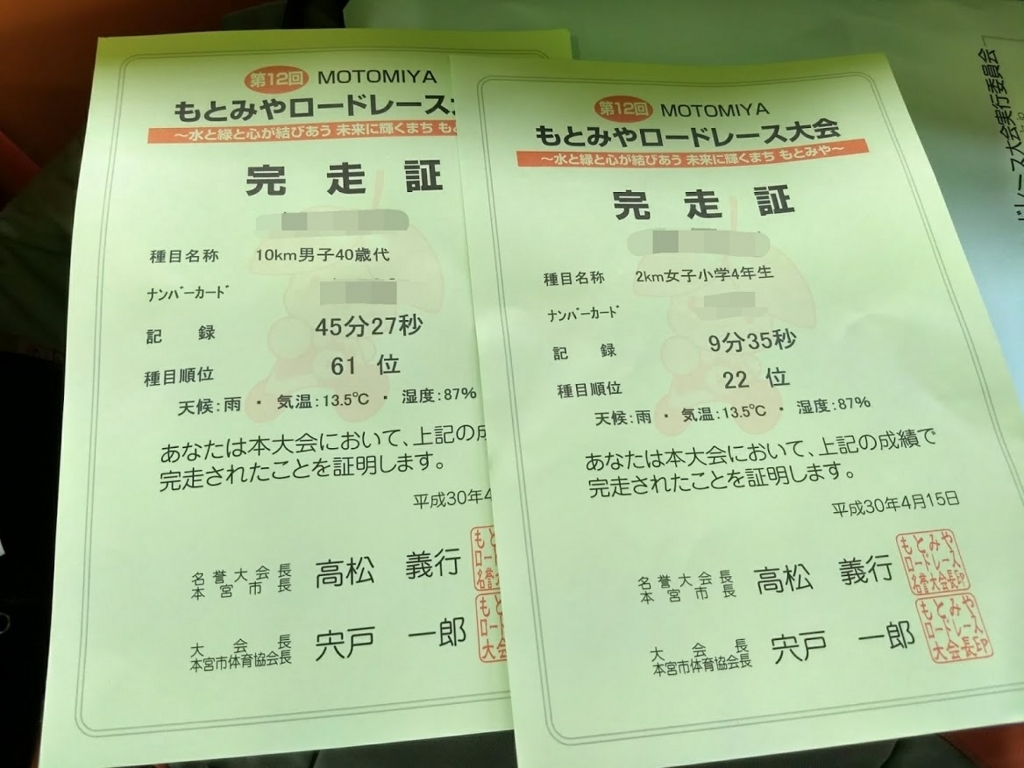 第12回 MOTOMIYA
もとみやロードレース
～水と緑と心が結びあう 未来に輝くまち も
完走証
種目名称 10km男子40歳代
ナンバーカード
記録 45分27秒
種目順位 61 位
天候:雨 ・ 気温:13.5℃ ・ 湿度:87%
あなたは本大会において、上記の
完走されたことを証明します。
平成30年4
名誉大会長
本宮市長
高松 義行
もと
ロード
名誉
大会長
本宮市体育協会長
宍戸 一郎
もと
ロード
大会
第12回 MOTOMIYA
もとみやロードレース大会
～水と緑と心が結びあう 未来に輝くまち もとみや～
完走証
種目名称 2km女子小学4年生
ナンバーカード
記録 9分35秒
種目順位 22 位
天候:雨 ・ 気温:13.5℃ ・ 湿度:87%
あなたは本大会において、上記の成績で
完走されたことを証明します。
平成30年4月15日
名誉大会長
本宮市長
高松 義行
もとみや
ロードレース
名誉大会長印
大会長
本宮市体育協会長
宍戸 一郎
もとみや
ロードレース
大会長印
レース大会実行委員会